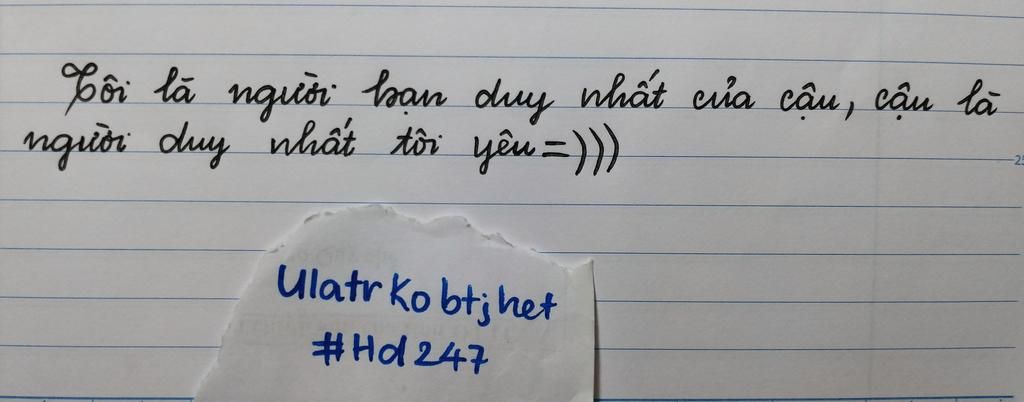 Tôi là người bạn duy nhất của cậu, cậu là
người duy nhất tôi yêu=)))
Ulatr Ko btj het
#Hd247